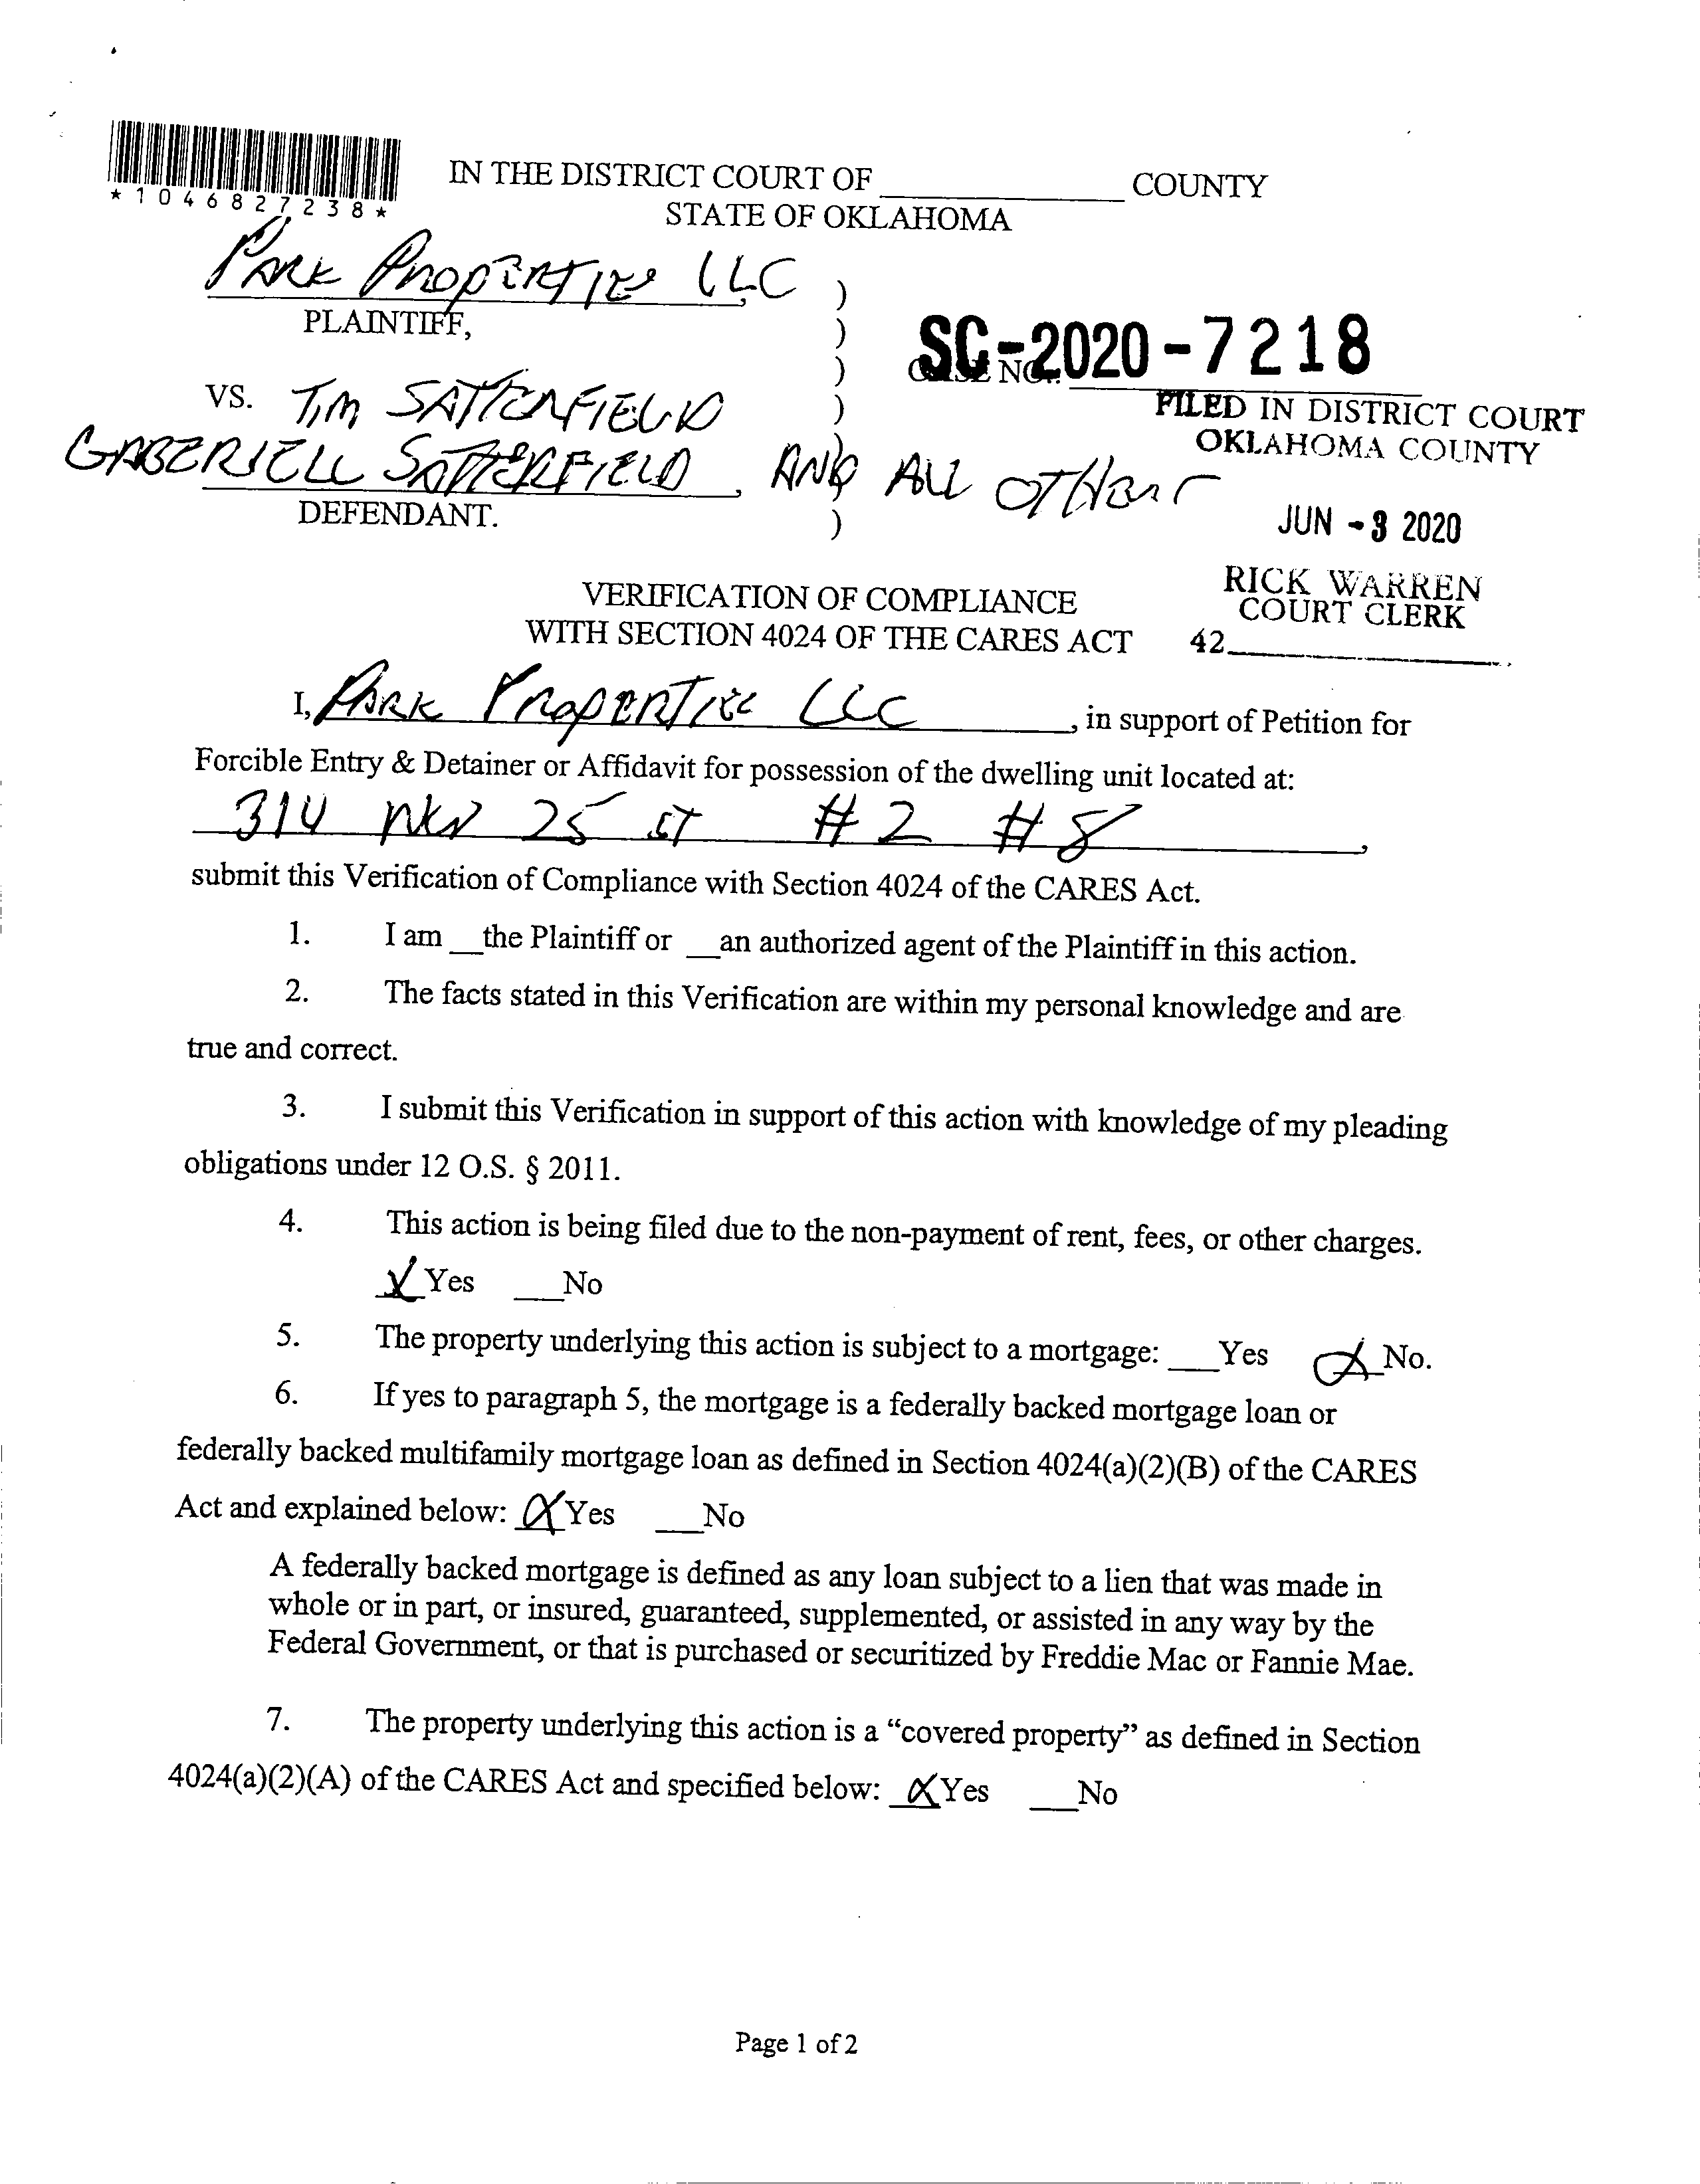 *1046827238*
IN THE DISTRICT COURT OF ____________ COUNTY
STATE OF OKLAHOMA
PARK PROPERTIES LLC , )
PLAINTIFF, )
SC-2020-7218
) CASE NO.:
FILED IN DISTRICT COURT
OKLAHOMA COUNTY
VS. TIM SATTERFIELD )
GABERIELL SATTERFIELD , AND ALL OTHERS
DEFENDANT. )
JUN -3 2020
RICK WARREN
COURT CLERK
42____________
VERIFICATION OF COMPLIANCE
WITH SECTION 4024 OF THE CARES ACT
I, PARK PROPERTIES LLC , in support of Petition for
Forcible Entry & Detainer or Affidavit for possession of the dwelling unit located at:
314 NW 25 ST #2 #8 ,
submit this Verification of Compliance with Section 4024 of the CARES Act.
1. I am __the Plaintiff or __an authorized agent of the Plaintiff in this action.
2. The facts stated in this Verification are within my personal knowledge and are
true and correct.
3. I submit this Verification in support of this action with knowledge of my pleading
obligations under 12 O.S. § 2011.
4. This action is being filed due to the non-payment of rent, fees, or other charges.
X Yes ___No
5. The property underlying this action is subject to a mortgage: ___Yes X No.
6. If yes to paragraph 5, the mortgage is a federally backed mortgage loan or
federally backed multifamily mortgage loan as defined in Section 4024(a)(2)(B) of the CARES
Act and explained below: X Yes ___No
A federally backed mortgage is defined as any loan subject to a lien that was made in
whole or in part, or insured, guaranteed, supplemented, or assisted in any way by the
Federal Government, or that is purchased or securitized by Freddie Mac or Fannie Mae.
7. The property underlying this action is a “covered property” as defined in Section
4024(a)(2)(A) of the CARES Act and specified below: X Yes ___No
Page 1 of 2